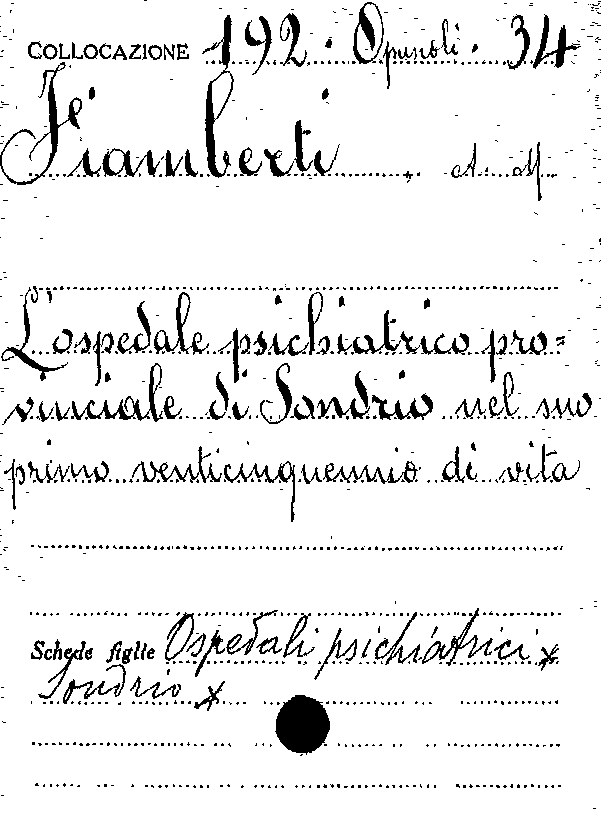 COLLOCAZIONE 192 · Opuscoli · 34
Fiamberti . A. M.
L'ospedale psichiatrico pro=
vinciale di Sondrio nel suo
primo venticinquennio di vita
Schede figlie Ospedali psichiatrici x
Sondrio x